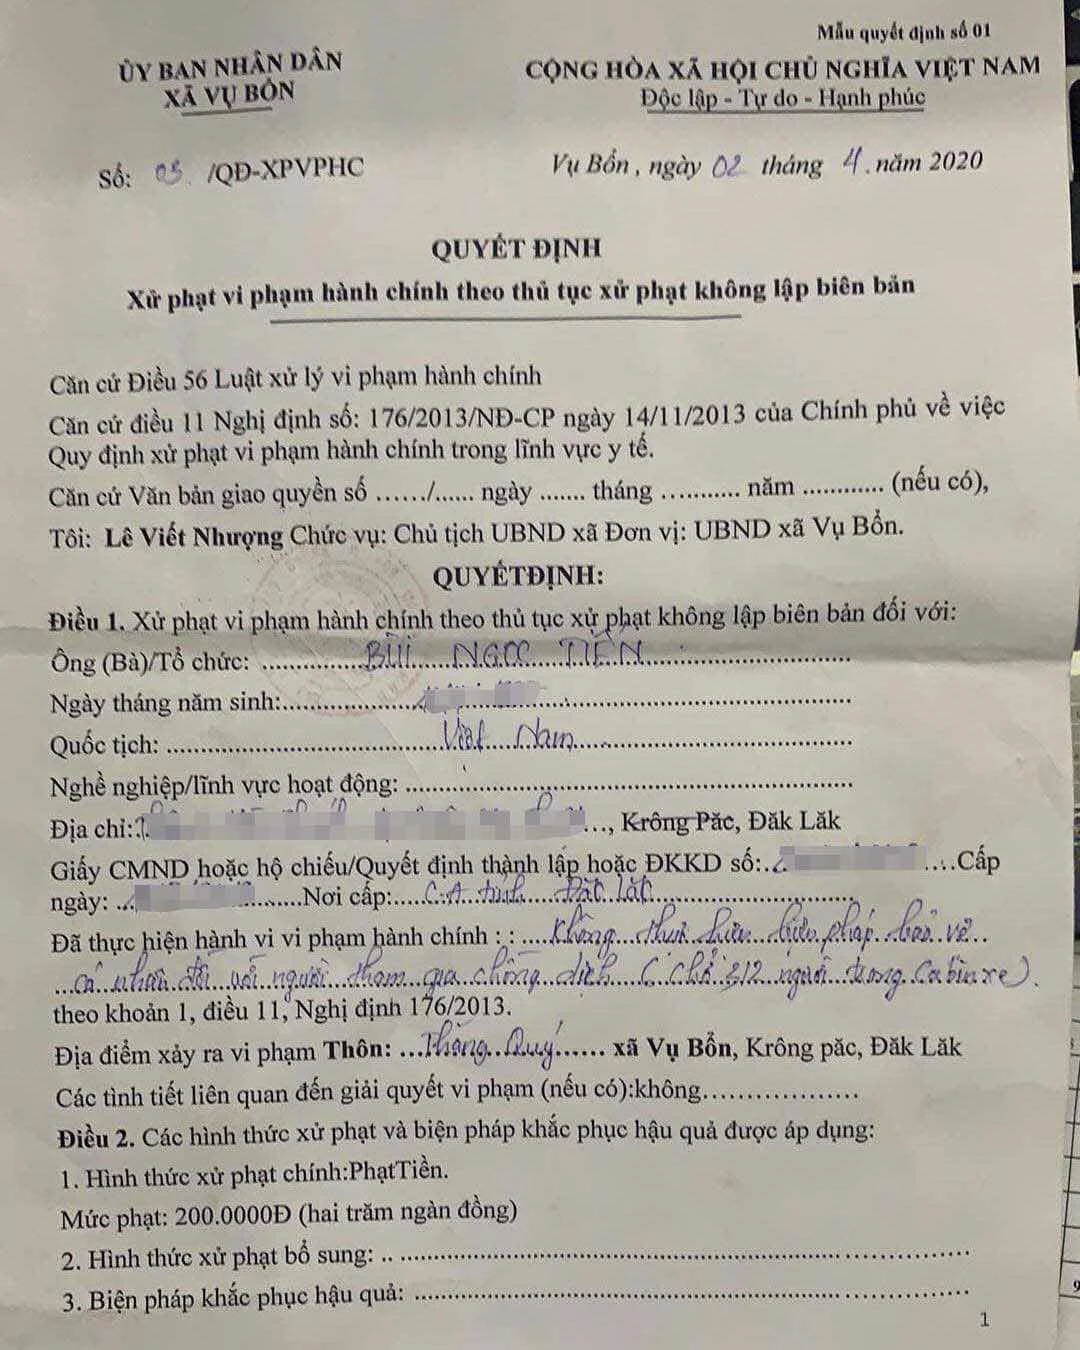 Mẫu quyết định số 01
ỦY BAN NHÂN DÂN
XÃ VỤ BỔN
CỘNG HÒA XÃ HỘI CHỦ NGHĨA VIỆT NAM
Độc lập - Tự do - Hạnh phúc
Số: 03 /QĐ-XPVPHC
Vụ Bổn , ngày 02 tháng 4 . năm 2020
QUYẾT ĐỊNH
Xử phạt vi phạm hành chính theo thủ tục xử phạt không lập biên bản
Căn cứ Điều 56 Luật xử lý vi phạm hành chính
Căn cứ điều 11 Nghị định số: 176/2013/NĐ-CP ngày 14/11/2013 của Chính phủ về việc
Quy định xử phạt vi phạm hành chính trong lĩnh vực y tế.
Căn cứ Văn bản giao quyền số ....../...... ngày ....... tháng ........... năm ............ (nếu có),
Tôi: Lê Viết Nhượng Chức vụ: Chủ tịch UBND xã Đơn vị: UBND xã Vụ Bổn.
QUYẾTĐỊNH:
Điều 1. Xử phạt vi phạm hành chính theo thủ tục xử phạt không lập biên bản đối với:
Ông (Bà)/Tổ chức: BÙI NGỌC TIẾN
Ngày tháng năm sinh:
Quốc tịch: Việt Nam
Nghề nghiệp/lĩnh vực hoạt động:
Địa chỉ: ..., Krông Păc, Đăk Lăk
Giấy CMND hoặc hộ chiếu/Quyết định thành lập hoặc ĐKKD số: ....Cấp
ngày: ......Nơi cấp: C.A tỉnh Đăk Lăk
Đã thực hiện hành vi vi phạm hành chính : : Không thực hiện biện pháp bảo vệ
cá nhân đối với người tham gia chống dịch ( chở 3/2 người trong Cabin xe) .
theo khoản 1, điều 11, Nghị định 176/2013.
Địa điểm xảy ra vi phạm Thôn: Thăng Quý xã Vụ Bổn, Krông păc, Đăk Lăk
Các tình tiết liên quan đến giải quyết vi phạm (nếu có):không
Điều 2. Các hình thức xử phạt và biện pháp khắc phục hậu quả được áp dụng:
1. Hình thức xử phạt chính:PhạtTiền.
Mức phạt: 200.0000Đ (hai trăm ngàn đồng)
2. Hình thức xử phạt bổ sung: ..
3. Biện pháp khắc phục hậu quả:
1